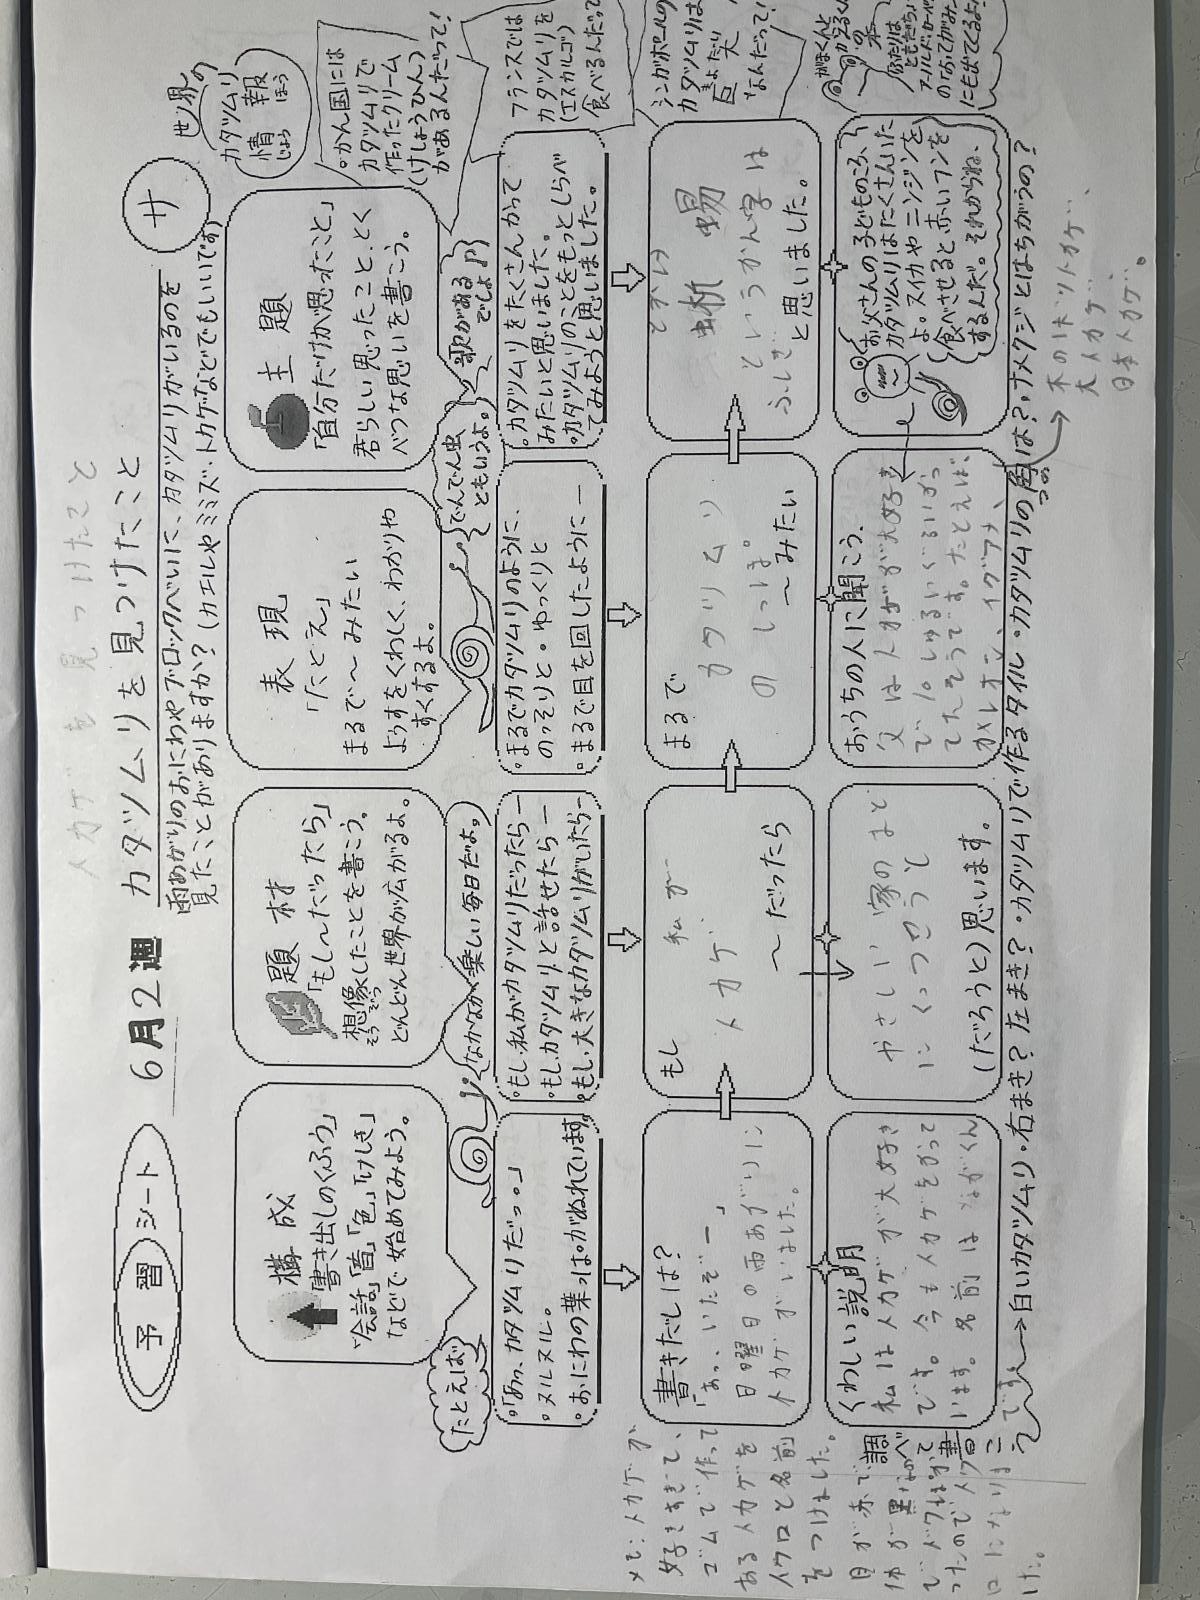 予習シート
6月2週
トカゲを見つけたこと
カタツムリを見つけたこと
サ
雨あがりのおにわやブロックべいに、カタツムリがいるのを
見たことがありますか？(カエルやミミズ・トカゲなどでもいいです)
世界の
カタツムリ
情報
じょう ほう
構成
書き出しのくふう
「会話」「音」「色」「けしき」
などで始めてみよう。
題材
「もし～だったら」
想像したことを書こう。
そうぞう
どんどん世界が広がるよ。
表現
「たとえ」
まるで～みたい
ようすをくわしく、わかりや
すくするよ。
主題
「自分だけが思ったこと」
君らしい思ったこと、とく
べつな思いを書こう。
。かん国には
カタツムリで
作ったクリーム
(けしょうひん)
があるんだって！
たとえば
なかなか楽しい毎日だよ。
でんでん虫
ともいうよ。
歌がある
でしょ
フランスでは
カタツムリを
(エスカルゴ)
食べるんだって
。「あっ、カタツムリだっ。」
。ヌルヌル。
。おにわの葉っぱがぬれています。
。もし、私がカタツムリだったら―
。もし、カタツムリと話せたら―
。もし、大きなカタツムリがいたら―
。まるでカタツムリのように、
のっそりと・ゆっくりと
。まるで目を回したように―
。カタツムリをたくさんかって
みたいと思いました。
。カタツムリのことをもっとしらべ
てみようと思いました。
シンガポールの
カタツムリは
きょだい
巨大
なんだって！
書きだしは？
「あっ、いたぞー」
日曜日の雨あがりに
トカゲがいました。
もし 私が
トカゲ
～だったら
まるで
カタツムリ
のしっぽ。
～みたい
とかげ
蜥蜴
というかん字は
ふしぎ
と思いました。
がまくんと
かえるくん
の本
ふたりは
ともだち
アーノルド・ローベル
の「おてがみ」
にも出てくるよ。
くわしい説明
私はトカゲが大好き
です。今もトカゲをかって
います。名前はながくん
です。
やさしい家のまど
にくっつこうと
(だろうと)思います。
おうちの人に聞こう。
父はトカゲが大好き
で10しゅるいぐらいかっ
てたそうです。たとえば、
カメレオン、イグアナ、
お父さんの子どものころ、
カタツムリはたくさんいた
よ。スイカやニンジンを
食べさせると赤いフンを
するんだ。それからね、
調べて書こう
→白いカタツムリ・右まき？左まき？・カタツムリで作るタイル・カタツムリの角は？・ナメクジとはちがうの？
つの
→木のぼりトカゲ、
大トカゲ、
日本トカゲ。
メモ：トカゲが
好きすぎて、
ゴムで作って
あるトカゲを
トクロと名前
をつけました。
目が赤で、
体が黒なの